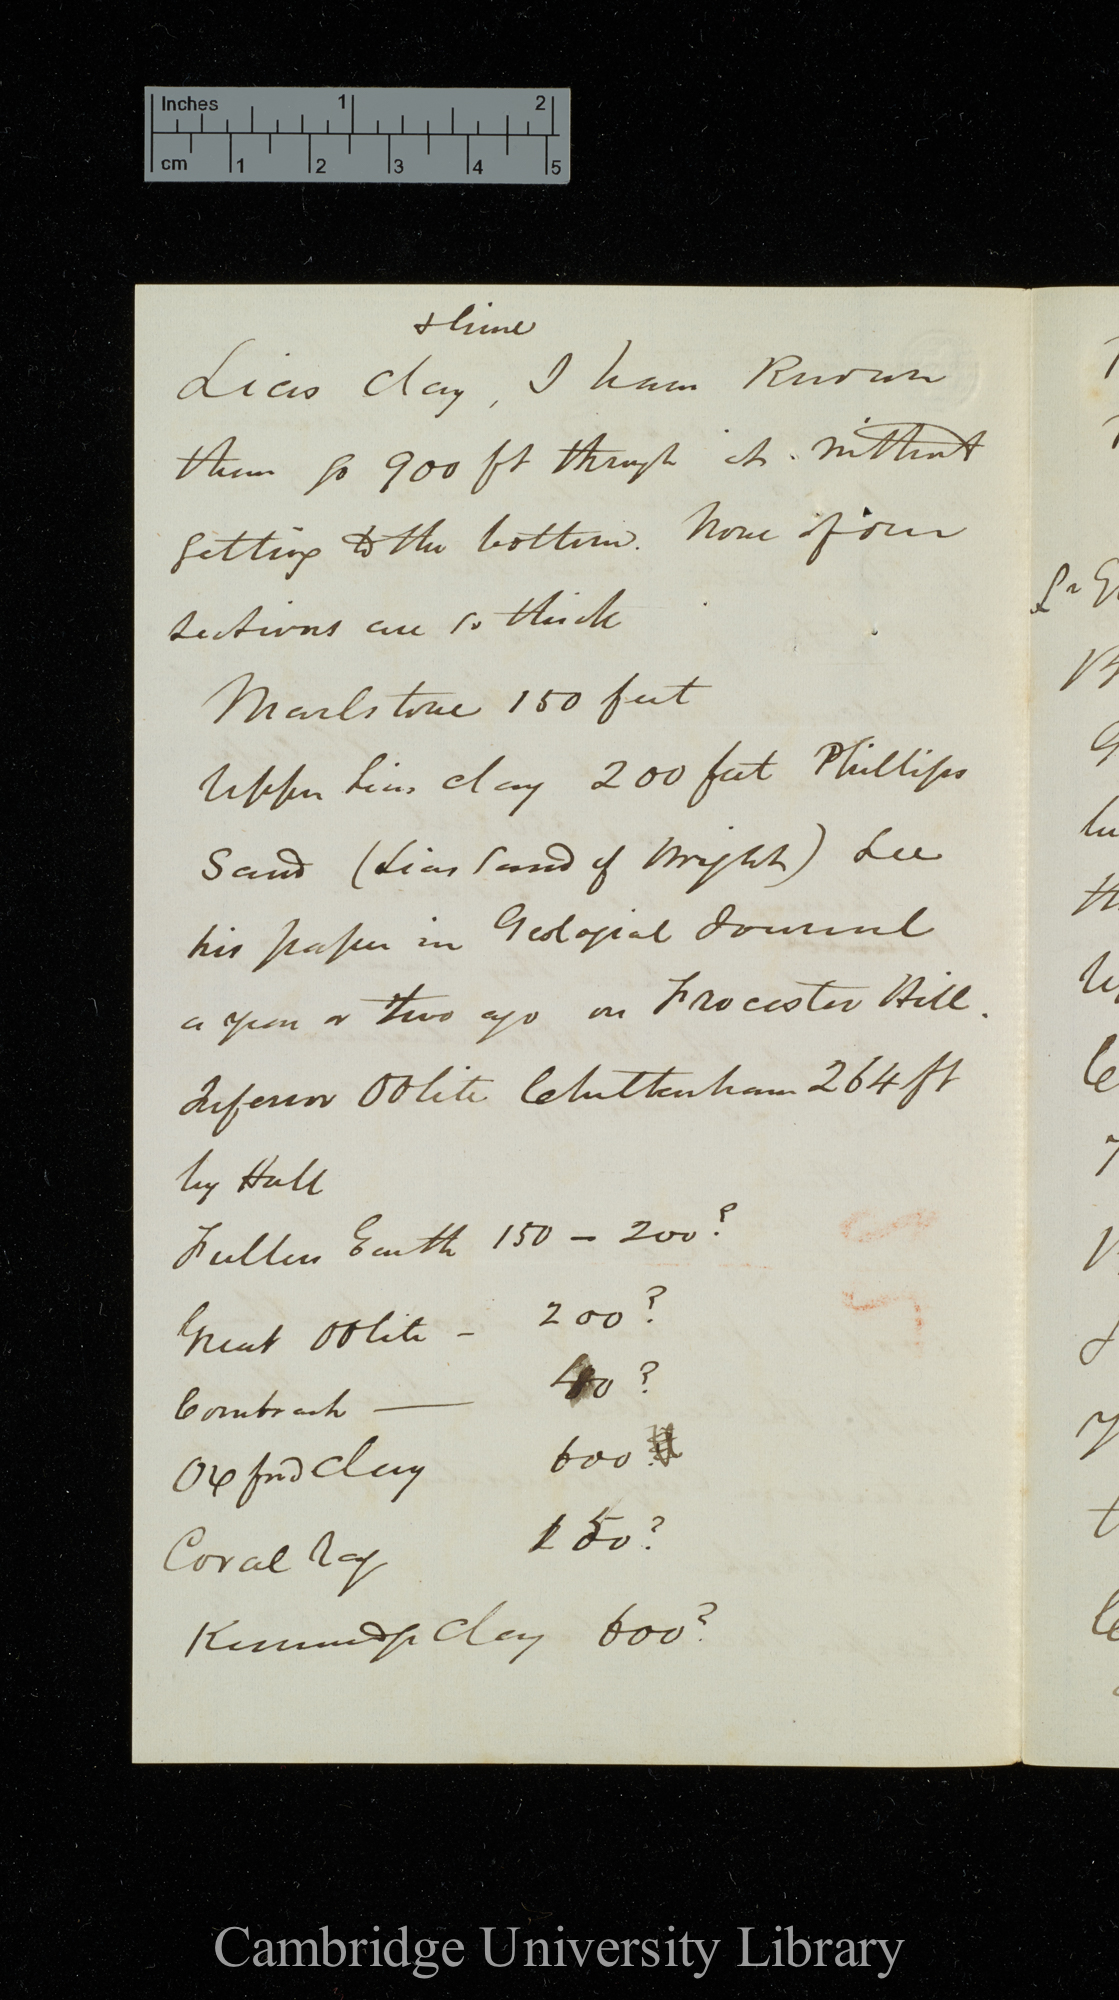 Inches 1 2
cm 1 2 3 4 5
& lime
Lias Clay, I have known
them go 900 ft through it without
getting to the bottom. None of our
sections are so thick
Marlstone 150 feet
Upper Lias clay 200 feet Phillips
Sand (Lias Sand of Wright) See
his paper in Geological Journal
a year or two ago on Frocester Hill.
Inferior Oolite Cheltenham 264 ft
by Hull
Fullers Earth 150 – 200?
Great Oolite – 200?
Cornbrash —— 40?
Oxford Clay 600
Coral Rag 150?
Kimmeridge Clay 600?
Cambridge University Library